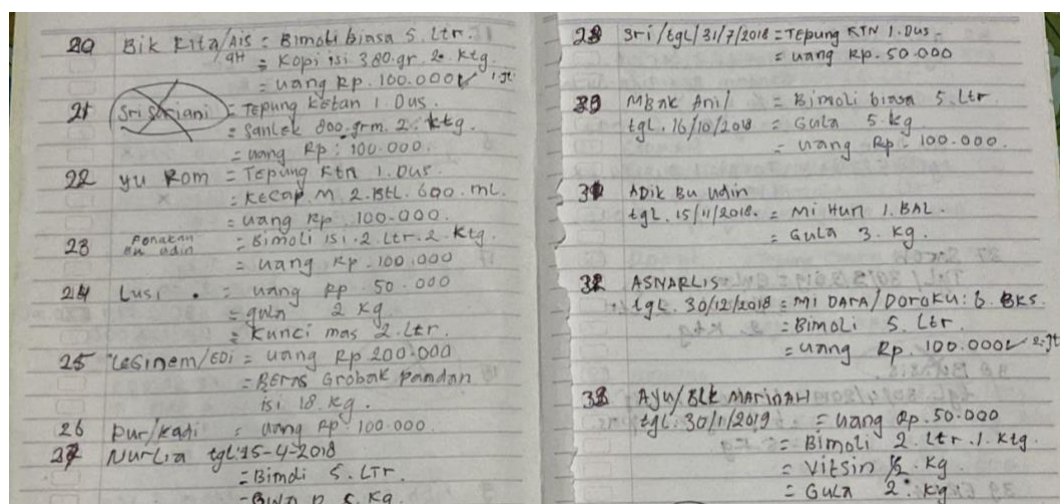 20 Bik Rita/Ais = Bimoli biasa 5. Ltr.
= Kopi isi 380.gr. 2. Ktg.
= uang Rp. 100.000
21 Sri Suriani = Tepung Ketan 1. Dus.
= Sanlek 800.grm. 2. ktg.
= uang Rp. 100.000.
22 yu Rom = Tepung Ktn 1. Dus.
= Kecap M 2. Btl. 600. ml.
= uang Rp 100.000.
23 Ponakan Bu udin = Bimoli isi. 2. Ltr. 2. Ktg.
= uang Rp. 100.000
24 Lusi = uang Rp 50.000
= gula 2 kg
= Kunci mas 2. Ltr.
25 Lesinem/EDi = uang Rp 200.000
= Beras Grobak pandan
isi 18. kg.
26 Pur/kadi = uang Rp 100.000.
27 Nurlia tgl 15-4-2018
= Bimoli 5. LTr.
5. Kg
28 Sri/tgl/31/7/2018 = Tepung KTN 1. Dus
= uang Rp. 50.000
MBak Ani/ = Bimoli biasa 5. Ltr
tgl. 16/10/2018 = Gula 5. kg
= uang Rp. 100.000.
ADik Bu udin
tgl. 15/11/2018. = Mi Hun 1. BAL.
= Gula 3. Kg.
32 ASNARLIS
tgl. 30/12/2018 = Mi DARA/Doroku: 6. BKS.
= Bimoli 5. Ltr.
= uang Rp. 100.000
33 Ayu/Blk MARIDAH
tgl. 30/1/2019 = uang Rp. 50.000
= Bimoli 2. Ltr. 1. Ktg.
= Vitsin ½. Kg
= Gula 2. Kg